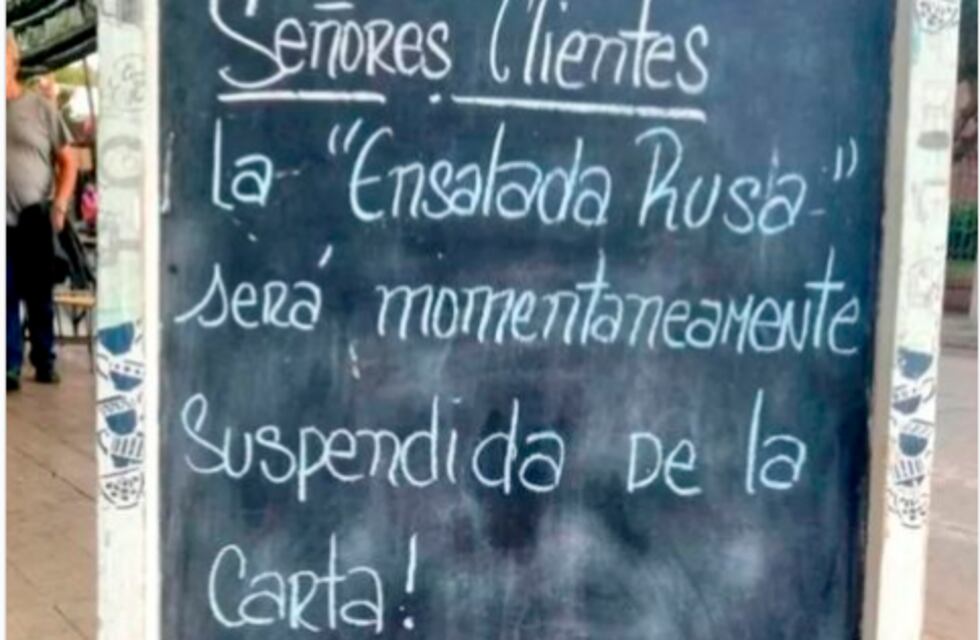 Señores Clientes
la "Ensalada Rusa"
será momentaneamente
Suspendida de la
Carta!